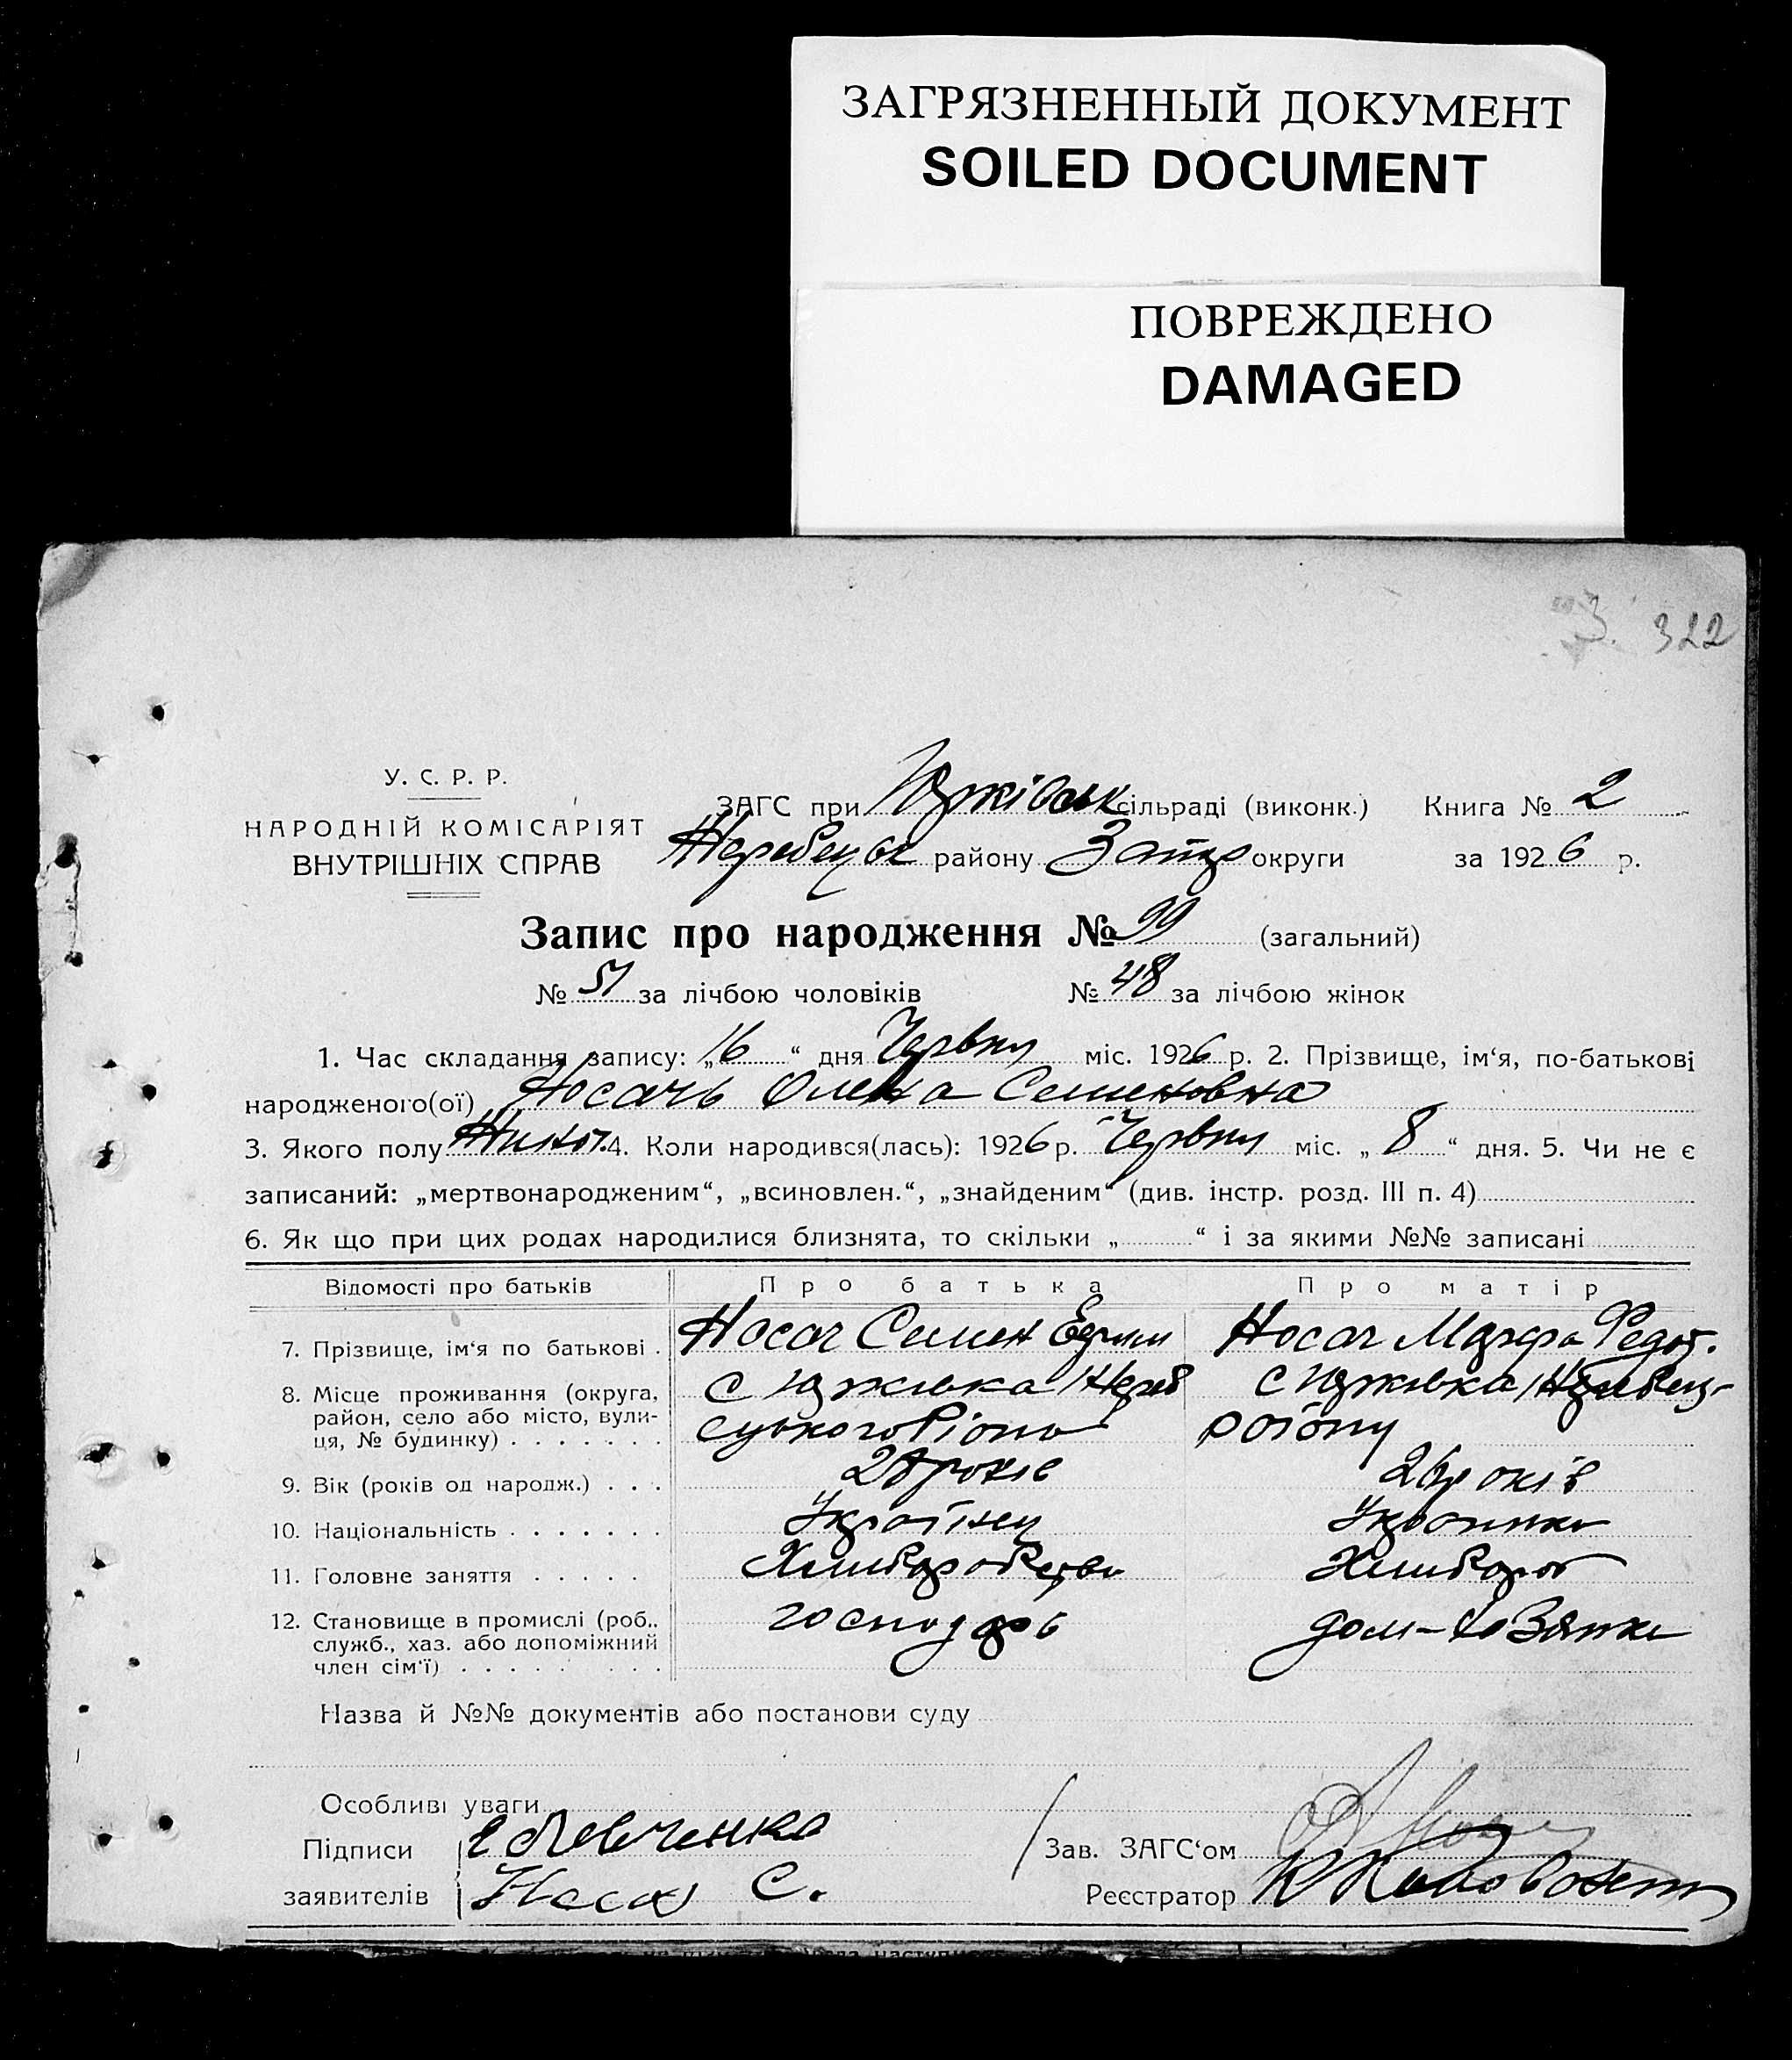 ЗАГРЯЗНЕННЫЙ ДОКУМЕНТ
SOILED DOCUMENT
ПОВРЕЖДЕНО
DAMAGED
322
У. С. Р. Р.
НАРОДНІЙ КОМІСАРІЯТ
ВНУТРІШНІХ СПРАВ
ЗАГС при Юрківськ сільраді (виконк.) Книга № 2
Жеребецьк району Запор округи за 1926 р.
Запис про народження № 99 (загальний)
№ 51 за лічбою чоловіків № 48 за лічбою жінок
1. Час складання запису: „16“ дня Червня міс. 1926 р. 2. Прізвище, ім‘я, по-батькові
народженого(ої) Носачь Олена Семеновна
3. Якого полу Жиноч. 4. Коли народився(лась): 1926 р. Червня міс. „8“ дня. 5. Чи не є
записаний: „мертвонародженим“, „всиновлен.“, „знайденим“ (див. інстр. розд. III п. 4)
6. Як що при цих родах народилися близнята, то скільки „ “ і за якими №№ записані
Відомості про батьків Про батька Про матір
7. Прізвище, ім‘я по батькові . Носач Семен Носач Марфа Федот.
8. Місце проживання (округа, с Юрківка Жереб с Юрківка
район, село або місто, вули- цького району
ця, № будинку) . . . . . . .
9. Вік (років од народж.) . . . 28 років 26 років
10. Національність . . . . . . . Українец Украинка
11. Головне заняття . . . . . Хлиборобство Хлибороб
12. Становище в промислі (роб.. господарь дом-хозяика
служб., хаз. або допоміжний
член сім‘ї) . . . . . . . . .
Назва й №№ документів або постанови суду
Особливі уваги
Підписи Левченко Зав. ЗАГС‘ом
заявителів Носач С. Реєстратор